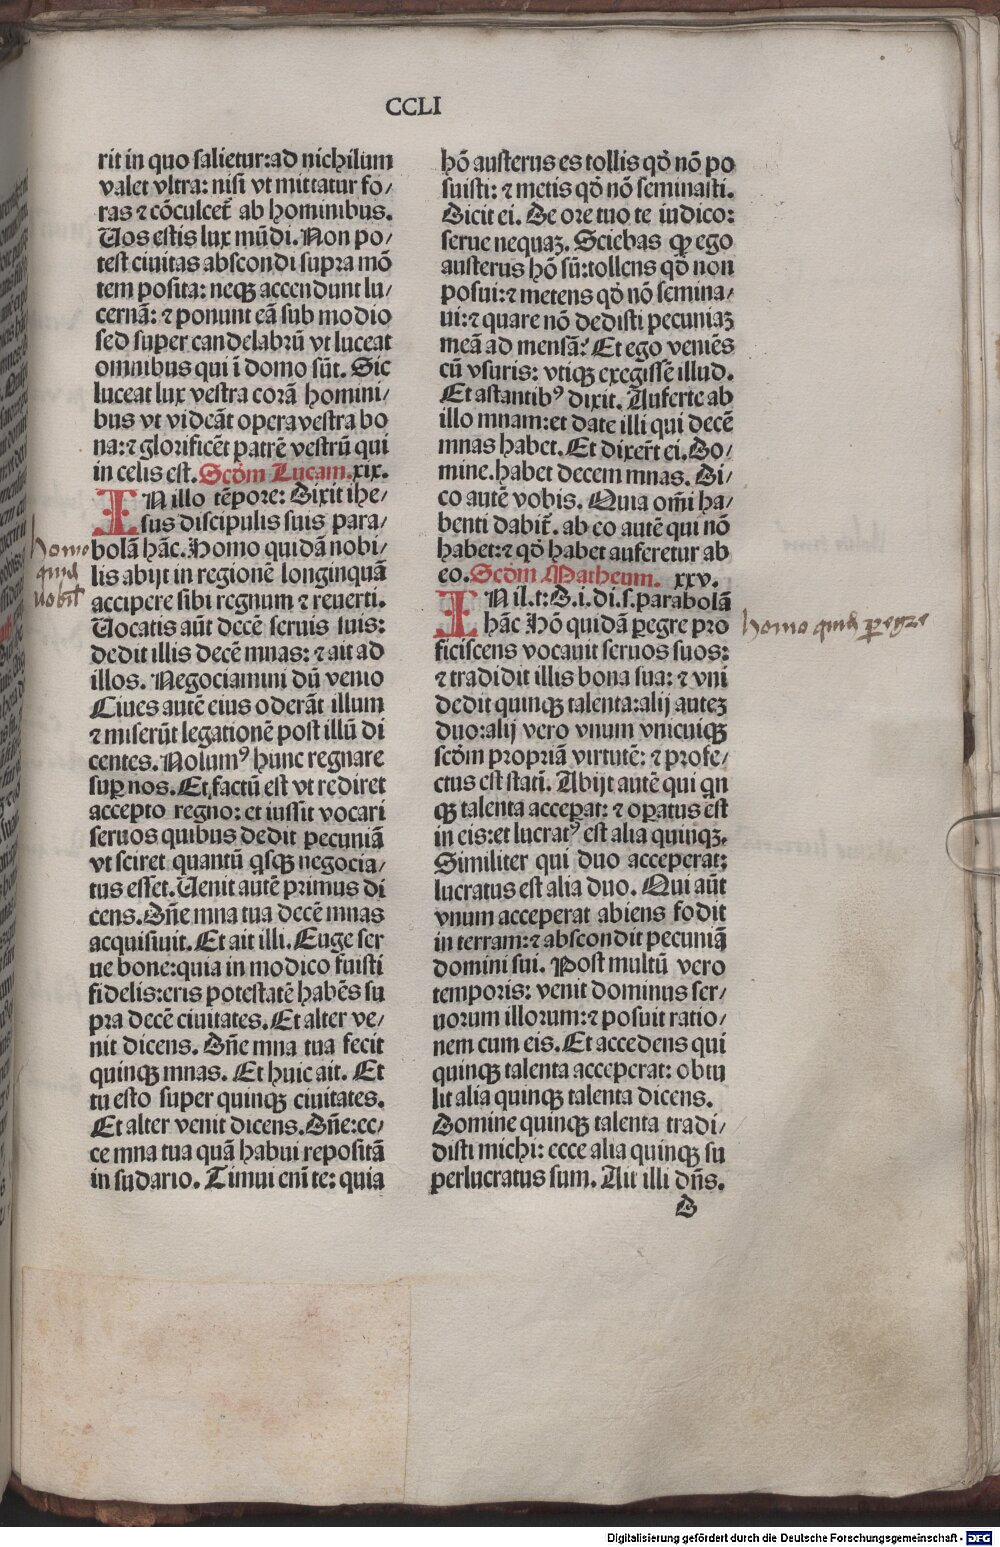 CCLI
rit in quo salietur: ad nichilum
valet vltra: nisi vt mittatur fo/
ras ⁊ cōculcet᷑ ab hominibus.
Uos estis lux mūdi. Non po/
test ciuitas abscondi supra mō
tem posita: neqꝫ accendunt lu/
cernā: ⁊ ponunt eā sub modio
sed super candelabrū vt luceat
omnibus qui ī domo sūt. Sic
luceat lux vestra corā homini/
bus vt videāt opera vestra bo
na: ⁊ glorificēt patrē vestrū qui
in celis est. Scdm̄ Lucam. xix.
IN illo tēpore: Dixit ihe/
sus discipulis suis para/
bolā hāc. Homo quidā nobi/
lis abijt in regionē longinquā
accipere sibi regnum ⁊ reuerti.
Uocatis aūt decē seruis suis:
dedit illis decē mnas: ⁊ ait ad
illos. Negociamini dū venio
Ciues autē eius oderāt illum
⁊ miserūt legationē post illū di
centes. Nolumꝰ hunc regnare
suꝑ nos. Et factū est vt rediret
accepto regno: et iussit vocari
seruos quibus dedit pecuniā
vt sciret quantū qͥsqꝫ negocia/
tus esset. Uenit autē primus di
cens. Dn̄e mna tua decē mnas
acquisiuit. Et ait illi. Euge ser
ue bone: quia in modico fuisti
fidelis: eris potestatē habēs su
pra decē ciuitates. Et alter ve/
nit dicens. Dn̄e mna tua fecit
quinqꝫ mnas. Et huic ait. Et
tu esto super quinqꝫ ciuitates.
Et alter venit dicens. Dn̄e: ec/
ce mna tua quā habui repositā
in sudario. Timui eni̅ te: quia
homo
quidā
nobil'
hō austerus es tollis qd̄ nō po
suisti: ⁊ metis qd̄ nō seminasti.
Dicit ei. De ore tuo te iudico:
serue nequaꝫ. Sciebas ꝙ ego
austerus hō sū: tollens qd̄ non
posui: ⁊ metens qd̄ nō semina/
ui: ⁊ quare nō dedisti pecuniaꝫ
meā ad mensā? Et ego veniēs
cū vsuris: vtiqꝫ exegissē illud.
Et astantibꝰ dixit. Auferte ab
illo mnam: et date illi qui decē
mnas habet. Et dixer̄t ei. Do/
mine. habet decem mnas. Di/
co autē vobis. Quia om̄i ha/
benti dabit᷑. ab eo autē qui nō
habet: ⁊ qd̄ habet auferetur ab
eo. Scdm̄ Matheum. xxv.
IN il. t: D. i. di. s. parabolā
hāc Hō quidā ꝑegre pro
ficiscens vocauit seruos suos:
⁊ tradidit illis bona sua: ⁊ vni
dedit quinqꝫ talenta: alij auteꝫ
duo: alij vero vnum vnicuiqꝫ
scdm̄ propriā virtutē: ⁊ profe/
ctus est stati̅. Abijt autē qui qͥn
qꝫ talenta acceꝑat: ⁊ oꝑatus est
in eis: et lucratꝰ est alia quinqꝫ.
Similiter qui duo acceperat:
lucratus est alia duo. Qui aūt
vnum acceperat abiens fodit
in terram: ⁊ abscondit pecuniā
domini sui. Post multū vero
temporis: venit dominus ser/
uorum illorum: ⁊ posuit ratio/
nem cum eis. Et accedens qui
quinqꝫ talenta acceperat: obtu
lit alia quinqꝫ talenta dicens.
Domine quinqꝫ talenta tradi/
disti michi: ecce alia quinqꝫ su
perlucratus sum. Ait illi dn̄s.
D
homo quidā ꝑegre
Digitalisierung gefördert durch die Deutsche Forschungsgemeinschaft - DFG